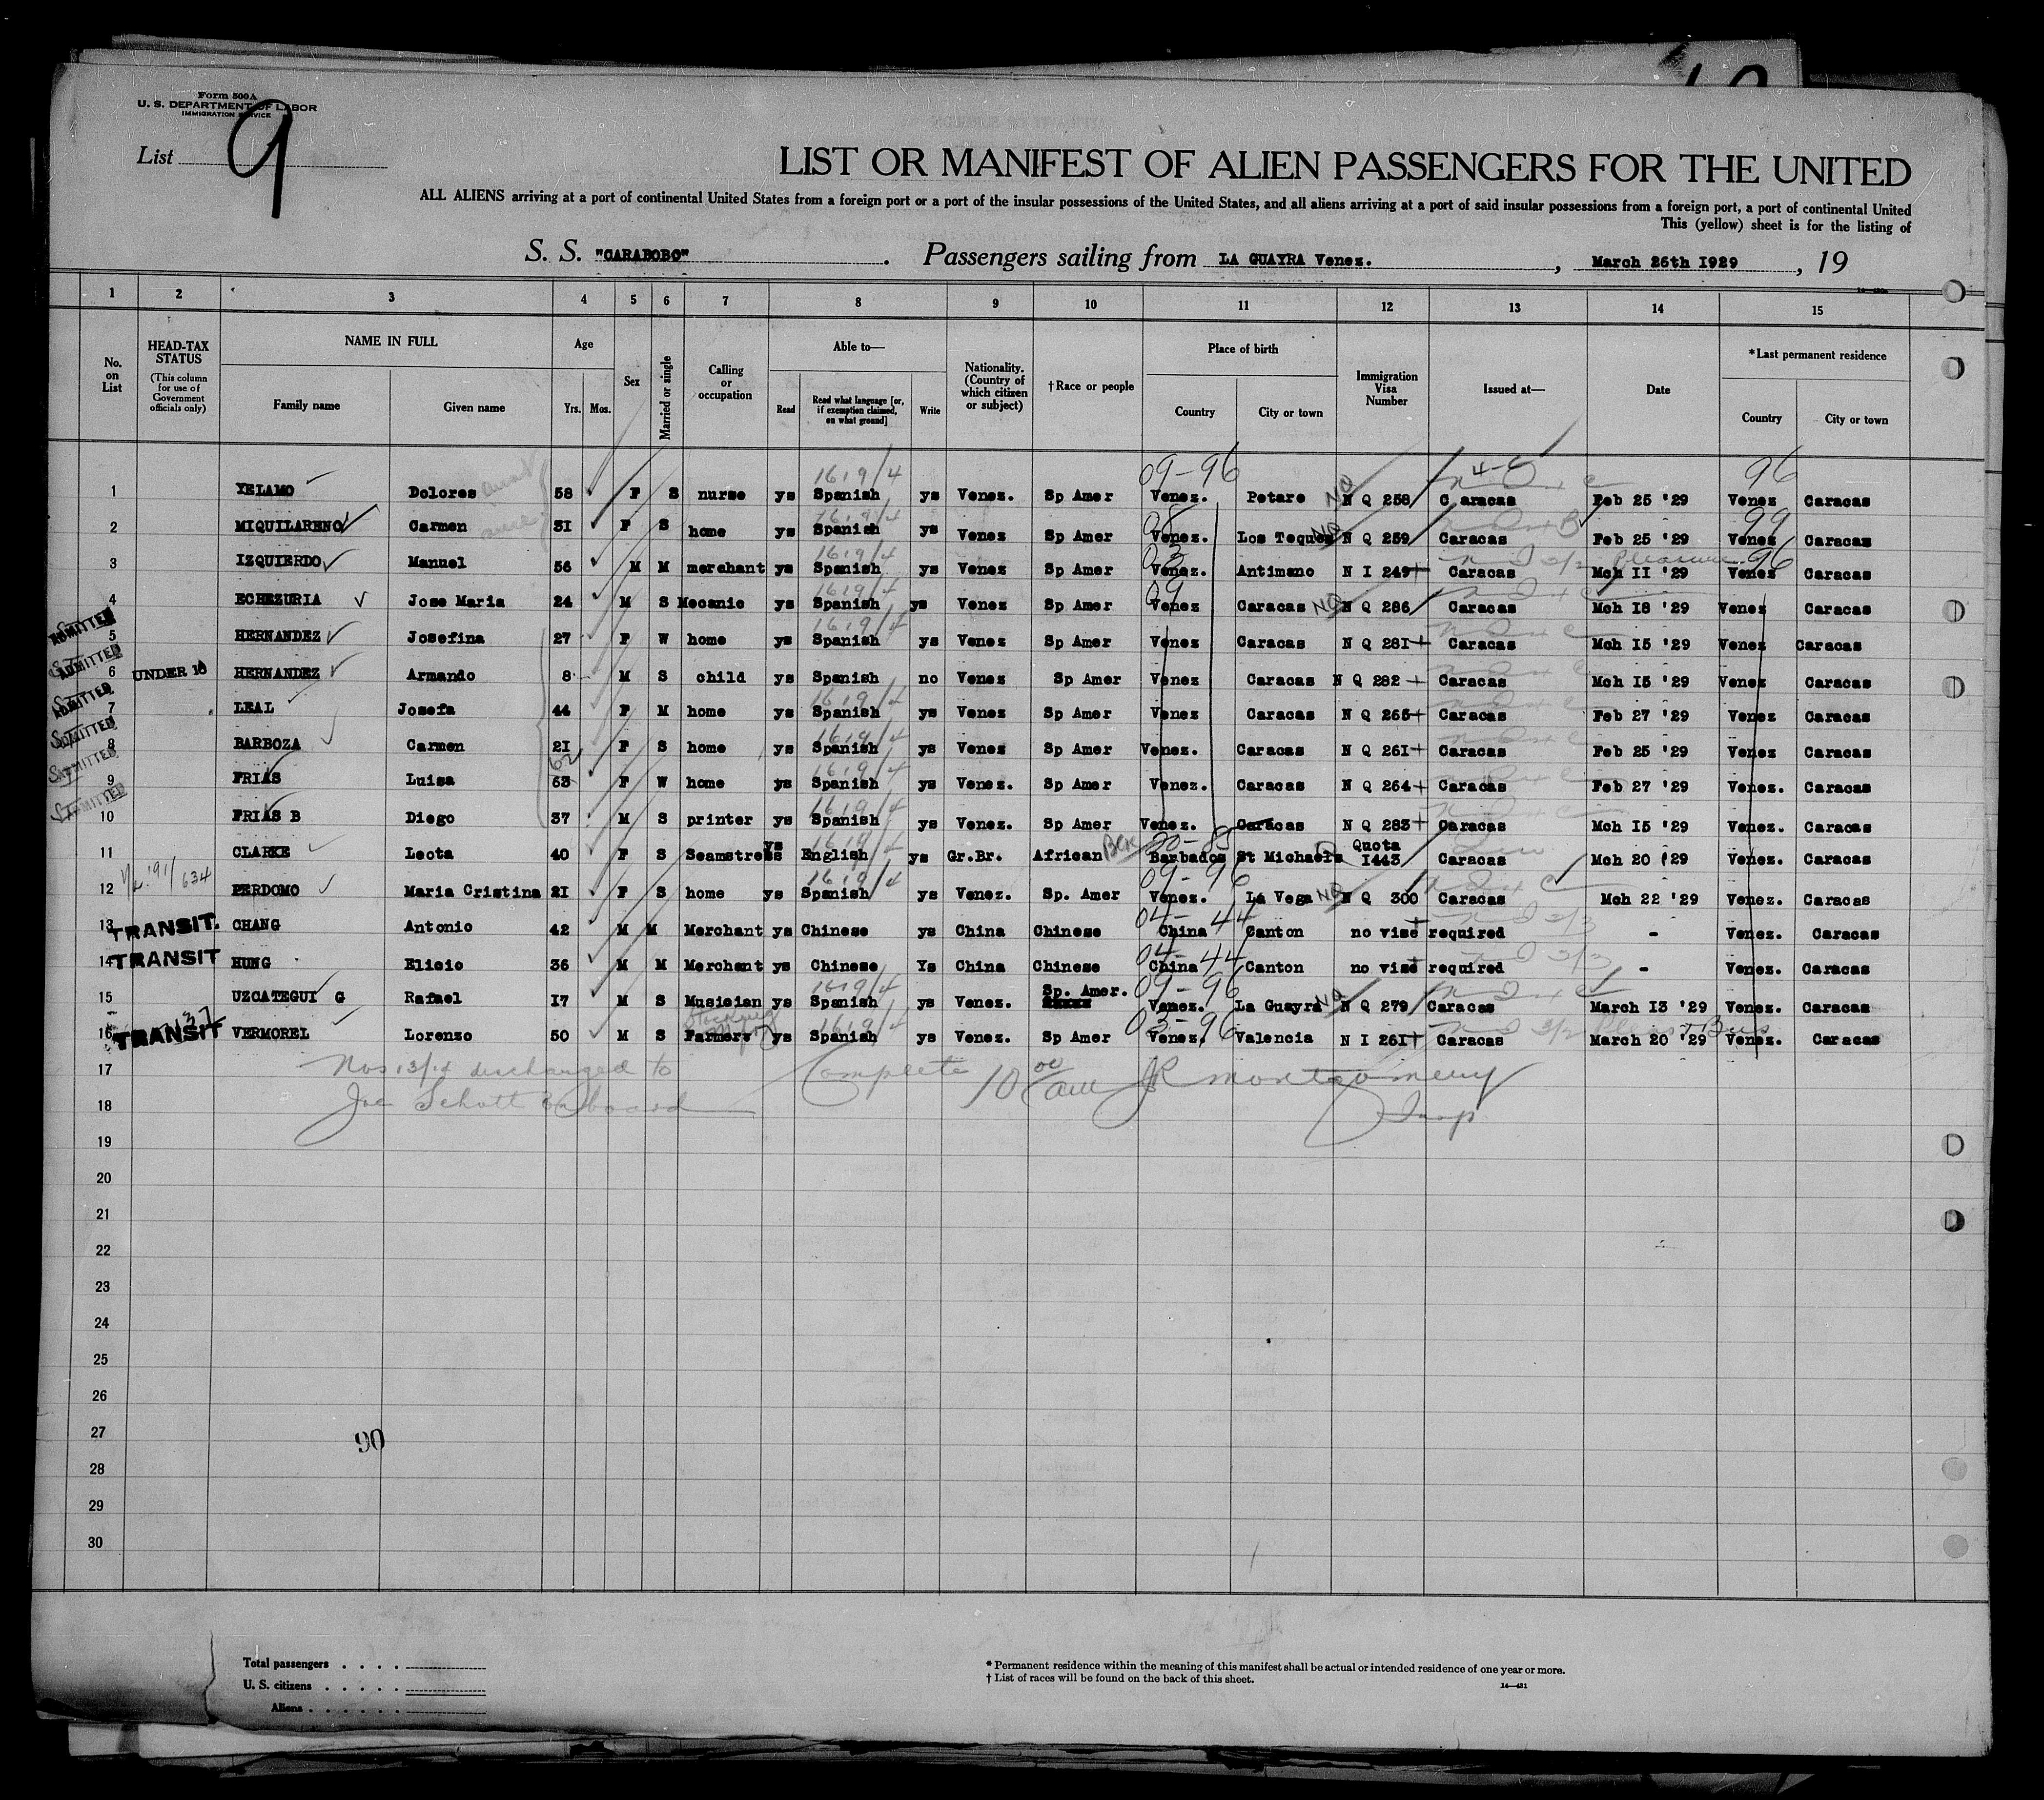 Form 500A
U. S. DEPARTMENT OF LABOR
IMMIGRATION SERVICE
List 9
LIST OR MANIFEST OF ALIEN PASSENGERS FOR THE UNITED
ALL ALIENS arriving at a port of continental United States from a foreign port or a port of the insular possessions of the United States, and all aliens arriving at a port of said insular possessions from a foreign port, a port of continental United
This (yellow) sheet is for the listing of
S. S. "CARABOBO". Passengers sailing from LA GUAYRA Venez., March 26th 1929, 19
1 2 3 4 5 6 7 8 9 10 11 12 13 14 15
No. on List
HEAD-TAX STATUS (This column for use of Government officials only)
NAME IN FULL Family name Given name
Age Yrs. Mos.
Sex
Married or single
Calling or occupation
Able to— Read Read what language [or, if exemption claimed, on what ground] Write
Nationality. (Country of which citizen or subject)
†Race or people
Place of birth Country City or town
Immigration Visa Number
Issued at—
Date
*Last permanent residence Country City or town
1619/4 09-96 96
1 YELAMO Dolores 58 F S nurse ys Spanish ys Venez. Sp Amer Venez. Petare NO N Q 258 Caracas Feb 25 '29 Venez Caracas
1619/4 99
2 MIQUILARENO Carmen 31 F S home ys Spanish ys Venez Sp Amer Venez. Los Teques NO N Q 259 Caracas Feb 25 '29 Venez Caracas
1619/4 03 Pleasure 96
3 IZQUIERDO Manuel 56 M M merchant ys Spanish ys Venez Sp Amer Venez. Antimano N I 249 Caracas Mch II '29 Venez Caracas
1619/4 09
4 ECHEZURIA Jose Maria 24 M S Mecanic ys Spanish ys Venez Sp Amer Venez Caracas NO N Q 286 Caracas Mch I8 '29 Venez Caracas
ADMITTED 1619/4
5 HERNANDEZ Josefina 27 F W home ys Spanish ys Venez Sp Amer Venez Caracas N Q 281 Caracas Mch I5 '29 Venez Caracas
ADMITTED
6 UNDER 16 HERNANDEZ Armando 8 M S child ys Spanish no Venez Sp Amer Venez Caracas N Q 282 Caracas Mch I5 '29 Venez Caracas
ADMITTED 1619/4
7 LEAL Josefa 44 F M home ys Spanish ys Venez Sp Amer Venez Caracas N Q 265 Caracas Feb 27 '29 Venez Caracas
ADMITTED 1619/4
8 BARBOZA Carmen 2I F S home ys Spanish ys Venez Sp Amer Venez. Caracas N Q 26I Caracas Feb 25 '29 Venez Caracas
ADMITTED 62 1619/4
9 FRIAS Luisa 63 F W home ys Spanish ys Venez. Sp Amer Venez. Caracas N Q 264 Caracas Feb 27 '29 Venez. Caracas
ADMITTED 1619/4
10 FRIAS B Diego 37 M S printer ys Spanish ys Venez. Sp Amer Venez. Caracas N Q 283 Caracas Mch I5 '29 Venez. Caracas
1619/4 Quota
11 CLARKE Leota 40 F S Seamstress ys English ys Gr.Br. African Barbados St Michaels I443 Caracas Mch 20 '29 Venez. Caracas
191/634 1619/4 09-96
12 PERDOMO Maria Cristina 2I F S home ys Spanish ys Venez. Sp. Amer Venez. La Vega NO N Q 300 Caracas Mch 22 '29 Venez. Caracas
04-44
13 TRANSIT. CHANG Antonio 42 M M Merchant ys Chinese ys China Chinese China Canton no visé required - Venez. Caracas
04-44
14 TRANSIT HUNG Elicio 36 M M Merchant ys Chinese Ys China Chinese China Canton no visé required - Venez. Caracas
1619/4 Sp. Amer. 09-96
15 UZCATEGUI G Rafael I7 M S Musician ys Spanish ys Venez. Venez. La Guayra NO N Q 279 Caracas March I3 '29 Venez. Caracas
1619/4 03-96
16 TRANSIT VERMOREL Lorenzo 50 M S Farmer ys Spanish ys Venez. Sp Amer Venez. Valencia N I 26I Caracas March 20 '29 Venez. Caracas
17 Nos 13/14 discharged to Complete 10 00 am JR Montgomery
18 Joe Schott on board Insp
19
20
21
22
23
24
25
26
27
90
28
29
30
Total passengers
U. S. citizens
Aliens
* Permanent residence within the meaning of this manifest shall be actual or intended residence of one year or more.
† List of races will be found on the back of this sheet.
14—431